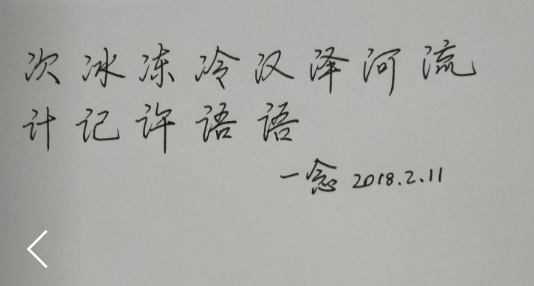 次冰冻冷汉泽河流
计记许语语
一念 2018.2.11